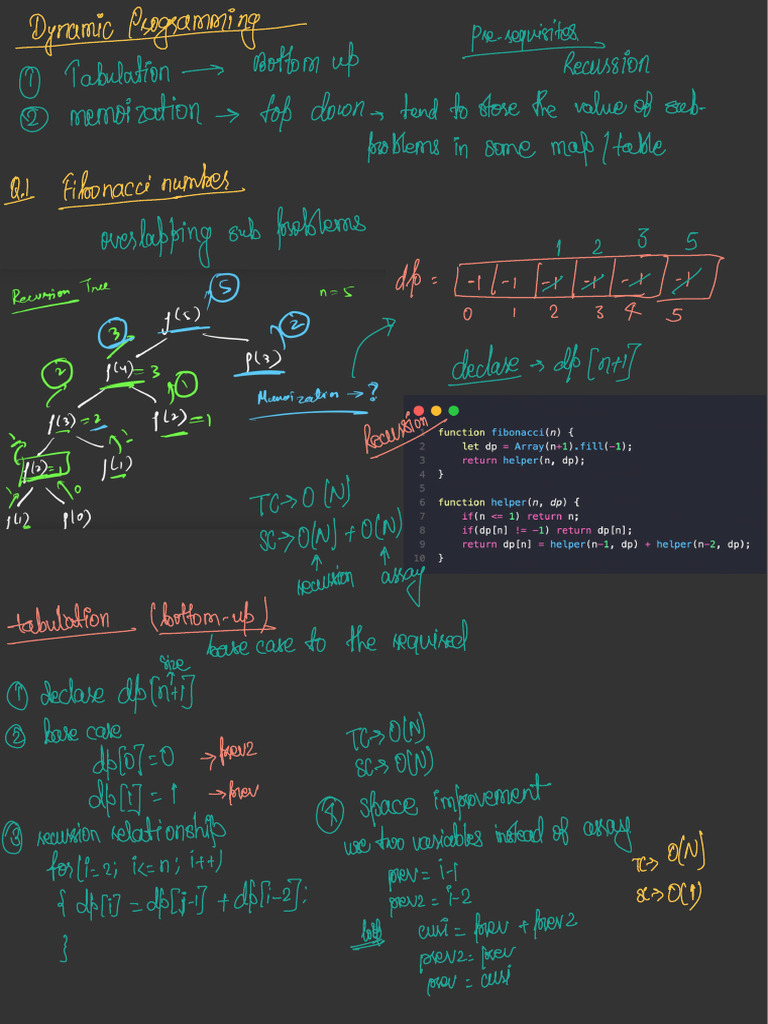 Dynamic Programming
Pre-requisites
Recussion
① Tabulation → Bottom up
② memoization → top down → tend to store the value of sub-
problems in some map / table
Q.1 Fibonacci number
overlapping sub problems
Recursion Tree
n = 5
f(5)
5
3
f(4) = 3
2
f(3)
2
f(3) = 2
1
f(2) = 1
f(2) = 1
f(1)
1
f(1)
f(0)
0
Memoization → ?
1 2 3 5
dp = -1 -1 -1 -1 -1 -1
0 1 2 3 4 5
declare → dp [n+1]
Recussion
1 function fibonacci(n) {
2 let dp = Array(n+1).fill(-1);
3 return helper(n, dp);
4 }
5
6 function helper(n, dp) {
7 if(n <= 1) return n;
8 if(dp[n] != -1) return dp[n];
9 return dp[n] = helper(n-1, dp) + helper(n-2, dp);
10 }
TC → O(N)
SC → O(N) + O(N)
↑ ↑
recursion array
tabulation (bottom-up)
base case to the required
size
① declare dp[n+1]
② base case
dp[0] = 0 → prev2
dp[1] = 1 → prev
③ recussion relationship
for (i=2; i<=n; i++)
{ dp[i] = dp[i-1] + dp[i-2];
}
TC → O(N)
SC → O(N)
④ space improvement
use two variables instead of array
prev = i-1
prev2 = i-2
loop
curi = prev + prev2
prev2 = prev
prev = curi
TC → O(N)
SC → O(1)